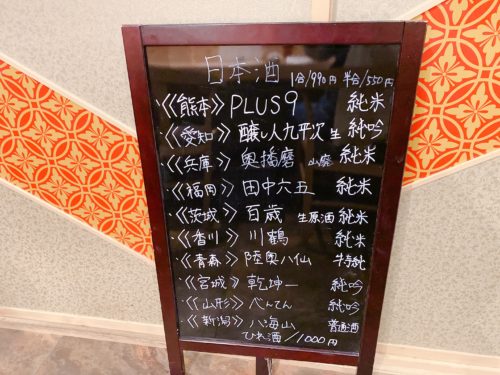 日本酒 1合/990円 半合/550円
・《熊本》 PLUS9 純米
・《愛知》 醸し人九平次 生 純吟
・《兵庫》 奥播磨 山廃 純米
・《福岡》 田中六五 純米
・《茨城》 百歳 生原酒 純米
・《香川》 川鶴 純米
・《青森》 陸奥八仙 特純
・《宮城》 乾坤一 純吟
・《山形》 べんてん 純吟
・《新潟》 八海山 普通酒
ひれ酒/1000円